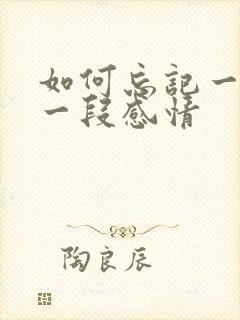 如何忘记一
一段感情
陶良辰